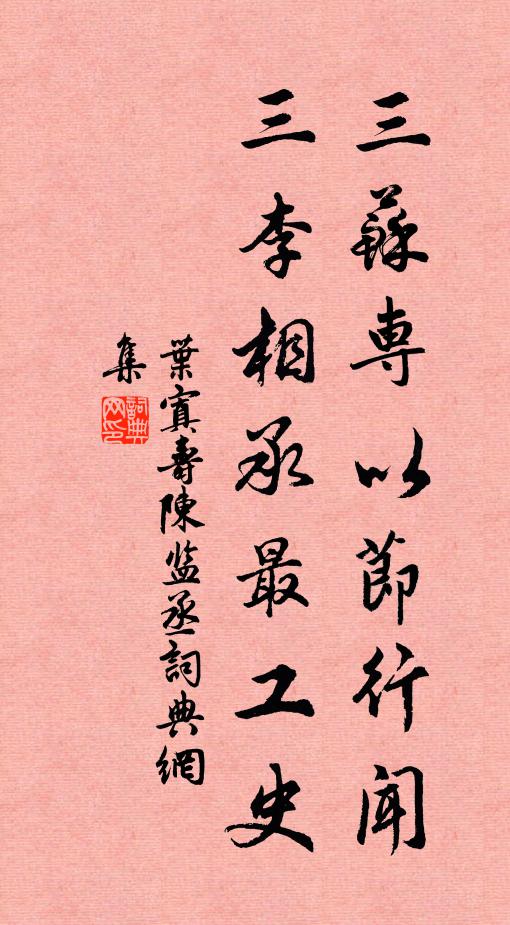 三蘇専以節行闻
三李相承最工史
葉寘壽陳监丞詞典網
集
詞典
网印